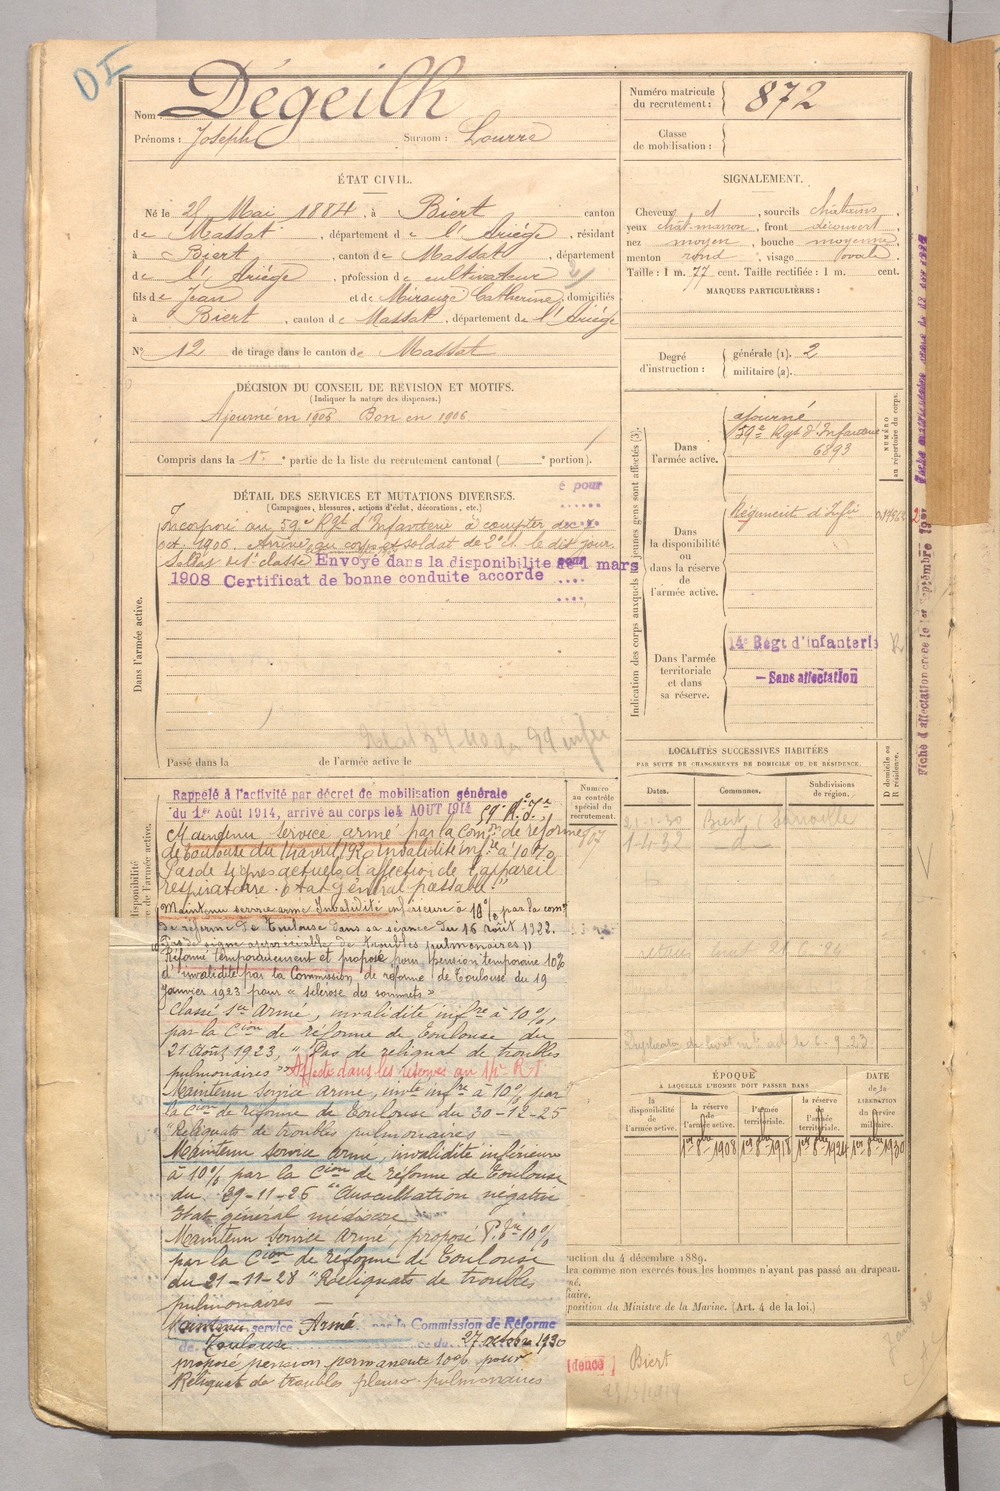 DI
Nom : Dégeilh
Prénoms : Joseph Surnom : Lourre
Numéro matricule du recrutement : 872
Classe de mobilisation :
ÉTAT CIVIL.
Né le 21 Mai 1884, à Biert canton
de Massat, département de l'Ariège, résidant
à Biert, canton de Massat, département
de l'Ariège, profession de cultivateur
fils de Jean et de Mirouze Catherine, domiciliés
à Biert, canton de Massat, département de l'Ariège
N° 12 de tirage dans le canton de Massat
SIGNALEMENT.
Cheveux et, sourcils châtains,
yeux chat. marron, front découvert,
nez moyen, bouche moyenne,
menton rond, visage ovale.
Taille : 1 m. 77 cent. Taille rectifiée : 1 m. cent.
MARQUES PARTICULIÈRES :
Degré d'instruction : générale (1). 2
militaire (2).
DÉCISION DU CONSEIL DE REVISION ET MOTIFS.
(Indiquer la nature des dispenses.)
Ajourné en 1905 Bon en 1906
Compris dans la 1re partie de la liste du recrutement cantonal ( e portion).
DÉTAIL DES SERVICES ET MUTATIONS DIVERSES.
(Campagnes, blessures, actions d'éclat, décorations, etc.)
é pour
Incorporé au 59e Rgt d'Infanterie à compter du
oct. 1906. Arrivé au corps et soldat de 2e cl. le dit jour.
Soldat de 1e classe Envoyé dans la disponibilité le 1 mars
1908 Certificat de bonne conduite accordé
Dans l'armée active.
Passé dans la de l'armée active le
Indication des corps auxquels les jeunes gens sont affectés (3).
NUMÉRO au répertoire du corps.
Dans l'armée active.
ajourné
59e Rgt d'Infanterie
6893
Dans la disponibilité ou dans la réserve de l'armée active.
Régiment d'Infie
Dans l'armée territoriale et dans sa réserve.
14e Regt d'infanterie
— Sans affectation
Fiche d'affectation créée le 1er Septembre 1907
LOCALITÉS SUCCESSIVES HABITÉES
PAR SUITE DE CHANGEMENTS DE DOMICILE OU DE RÉSIDENCE.
Dates. Communes. Subdivisions de région. D domicile ou R résidence.
Biert
1-4-32 d°
Numéro au contrôle spécial du recrutement.
Rappelé à l'activité par décret de mobilisation générale
du 1er Août 1914, arrivé au corps le 4 AOUT 1914 59e R.I.
Maintenu service armé par la Comon de réforme
de Toulouse du 14 avril 1920 invalidité infre à 10%
Pas de signes actuels d'affection de l'appareil
respiratoire. état général passable"
Maintenu service armé Invalidité inférieure à 10% par la comon
de réforme de Toulouse dans sa séance du 16 août 1922.
Pas de signe appréciable de troubles pulmonaires"
Réformé temporairement et proposé pour pension temporaire 10%
d'invalidité par la Commission de réforme de Toulouse du 19
Janvier 1923 pour "sclérose des sommets"
Classé Sce Armé, invalidité infre à 10%,
par la Cion de réforme de Toulouse du
21 Août 1923, "Pas de reliquat de troubles
pulmonaires" Affecté dans les réserves au 14e R.I.
Maintenu service armé, invté infre à 10% par
la Cion de réforme de Toulouse du 30-12-25
"Reliquats de troubles pulmonaires
Maintenu service armé, invalidité inférieure
à 10% par la Cion de réforme de Toulouse
du 29-11-26 "Auscultation négative
Etat général médiocre
Maintenu service armé, proposé P. Tre 10%
par la Cion de réforme de Toulouse
du 21-11-28 "Reliquats de troubles
pulmonaires —
Maintenu service Armé par la Commission de Réforme
de Toulouse ce du 27 octobre 1930
proposé pension permanente 10% pour
Reliquat de troubles pleuro-pulmonaires
ÉPOQUE
À LAQUELLE L'HOMME DOIT PASSER DANS
la disponibilité de l'armée active. la réserve de l'armée active. l'armée territoriale. la réserve de l'armée territoriale. DATE de la LIBÉRATION du service militaire.
1er 8bre 1908 1er 8bre 1918 1er 8bre 1924 1er 8bre 1930
uction du 4 décembre 1889.
dra comme non exercés tous les hommes n'ayant pas passé au drapeau.
mé.
liaire.
position du Ministre de la Marine. (Art. 4 de la loi.)
[dence] Biert